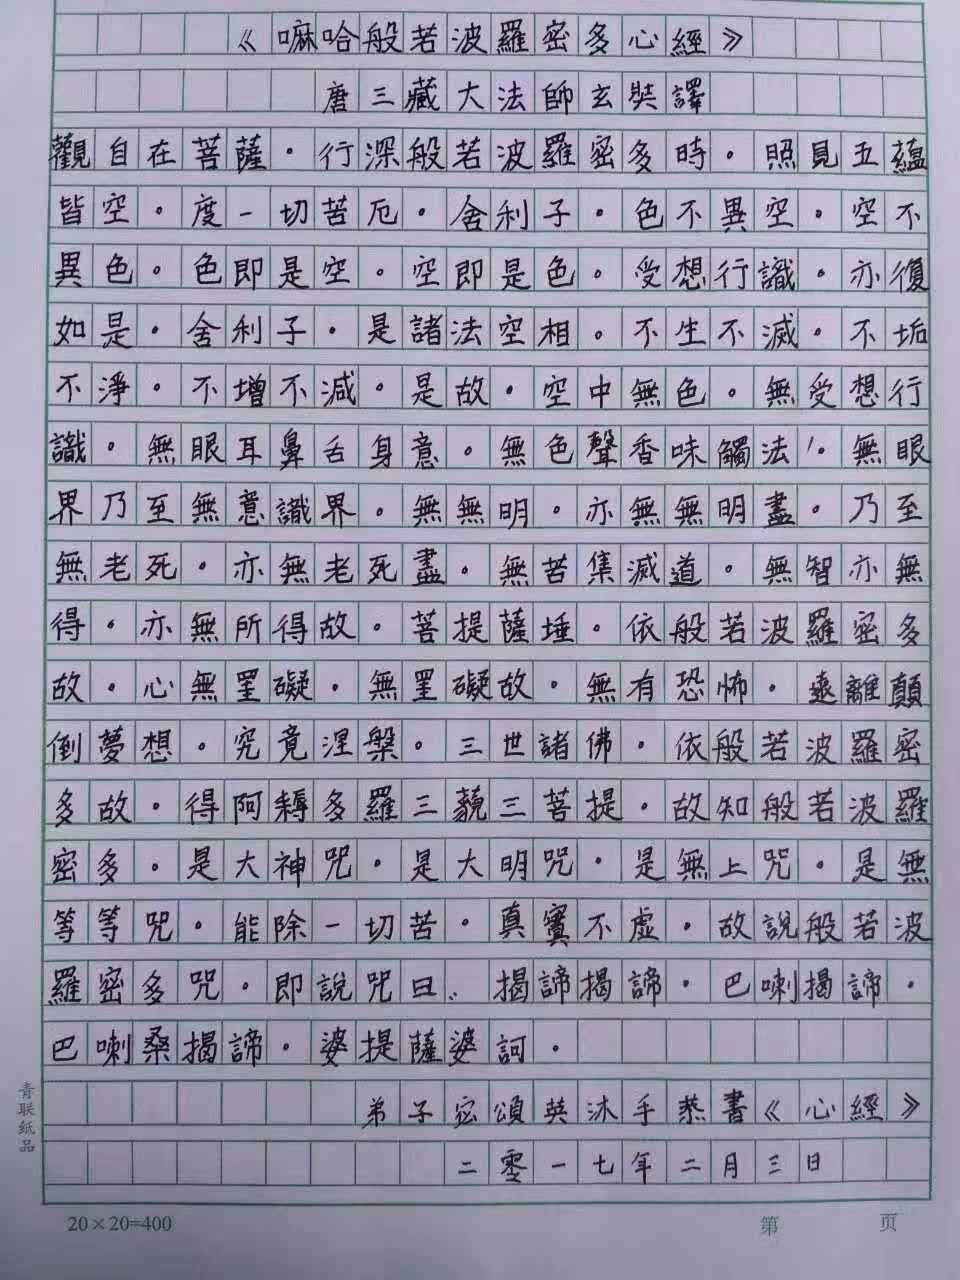 《嘛哈般若波羅密多心經》
唐三藏大法師玄奘譯
觀自在菩薩。行深般若波羅密多時。照見五蘊
皆空。度一切苦厄。舍利子。色不異空。空不
異色。色即是空。空即是色。受想行識。亦復
如是。舍利子。是諸法空相。不生不滅。不垢
不淨。不增不減。是故。空中無色。無受想行
識。無眼耳鼻舌身意。無色聲香味觸法。無眼
界乃至無意識界。無無明。亦無無明盡。乃至
無老死。亦無老死盡。無苦集滅道。無智亦無
得。亦無所得故。菩提薩埵。依般若波羅密多
故。心無罣礙。無罣礙故。無有恐怖。遠離顛
倒夢想。究竟涅槃。三世諸佛。依般若波羅密
多故。得阿耨多羅三藐三菩提。故知般若波羅
密多。是大神咒。是大明咒。是無上咒。是無
等等咒。能除一切苦。真實不虛。故說般若波
羅密多咒。即說咒曰：揭諦揭諦。巴喇揭諦。
巴喇桑揭諦。婆提薩婆訶。
弟子宓頌英沐手恭書《心經》
二零一七年二月三日
青联纸品
20×20=400 第 页